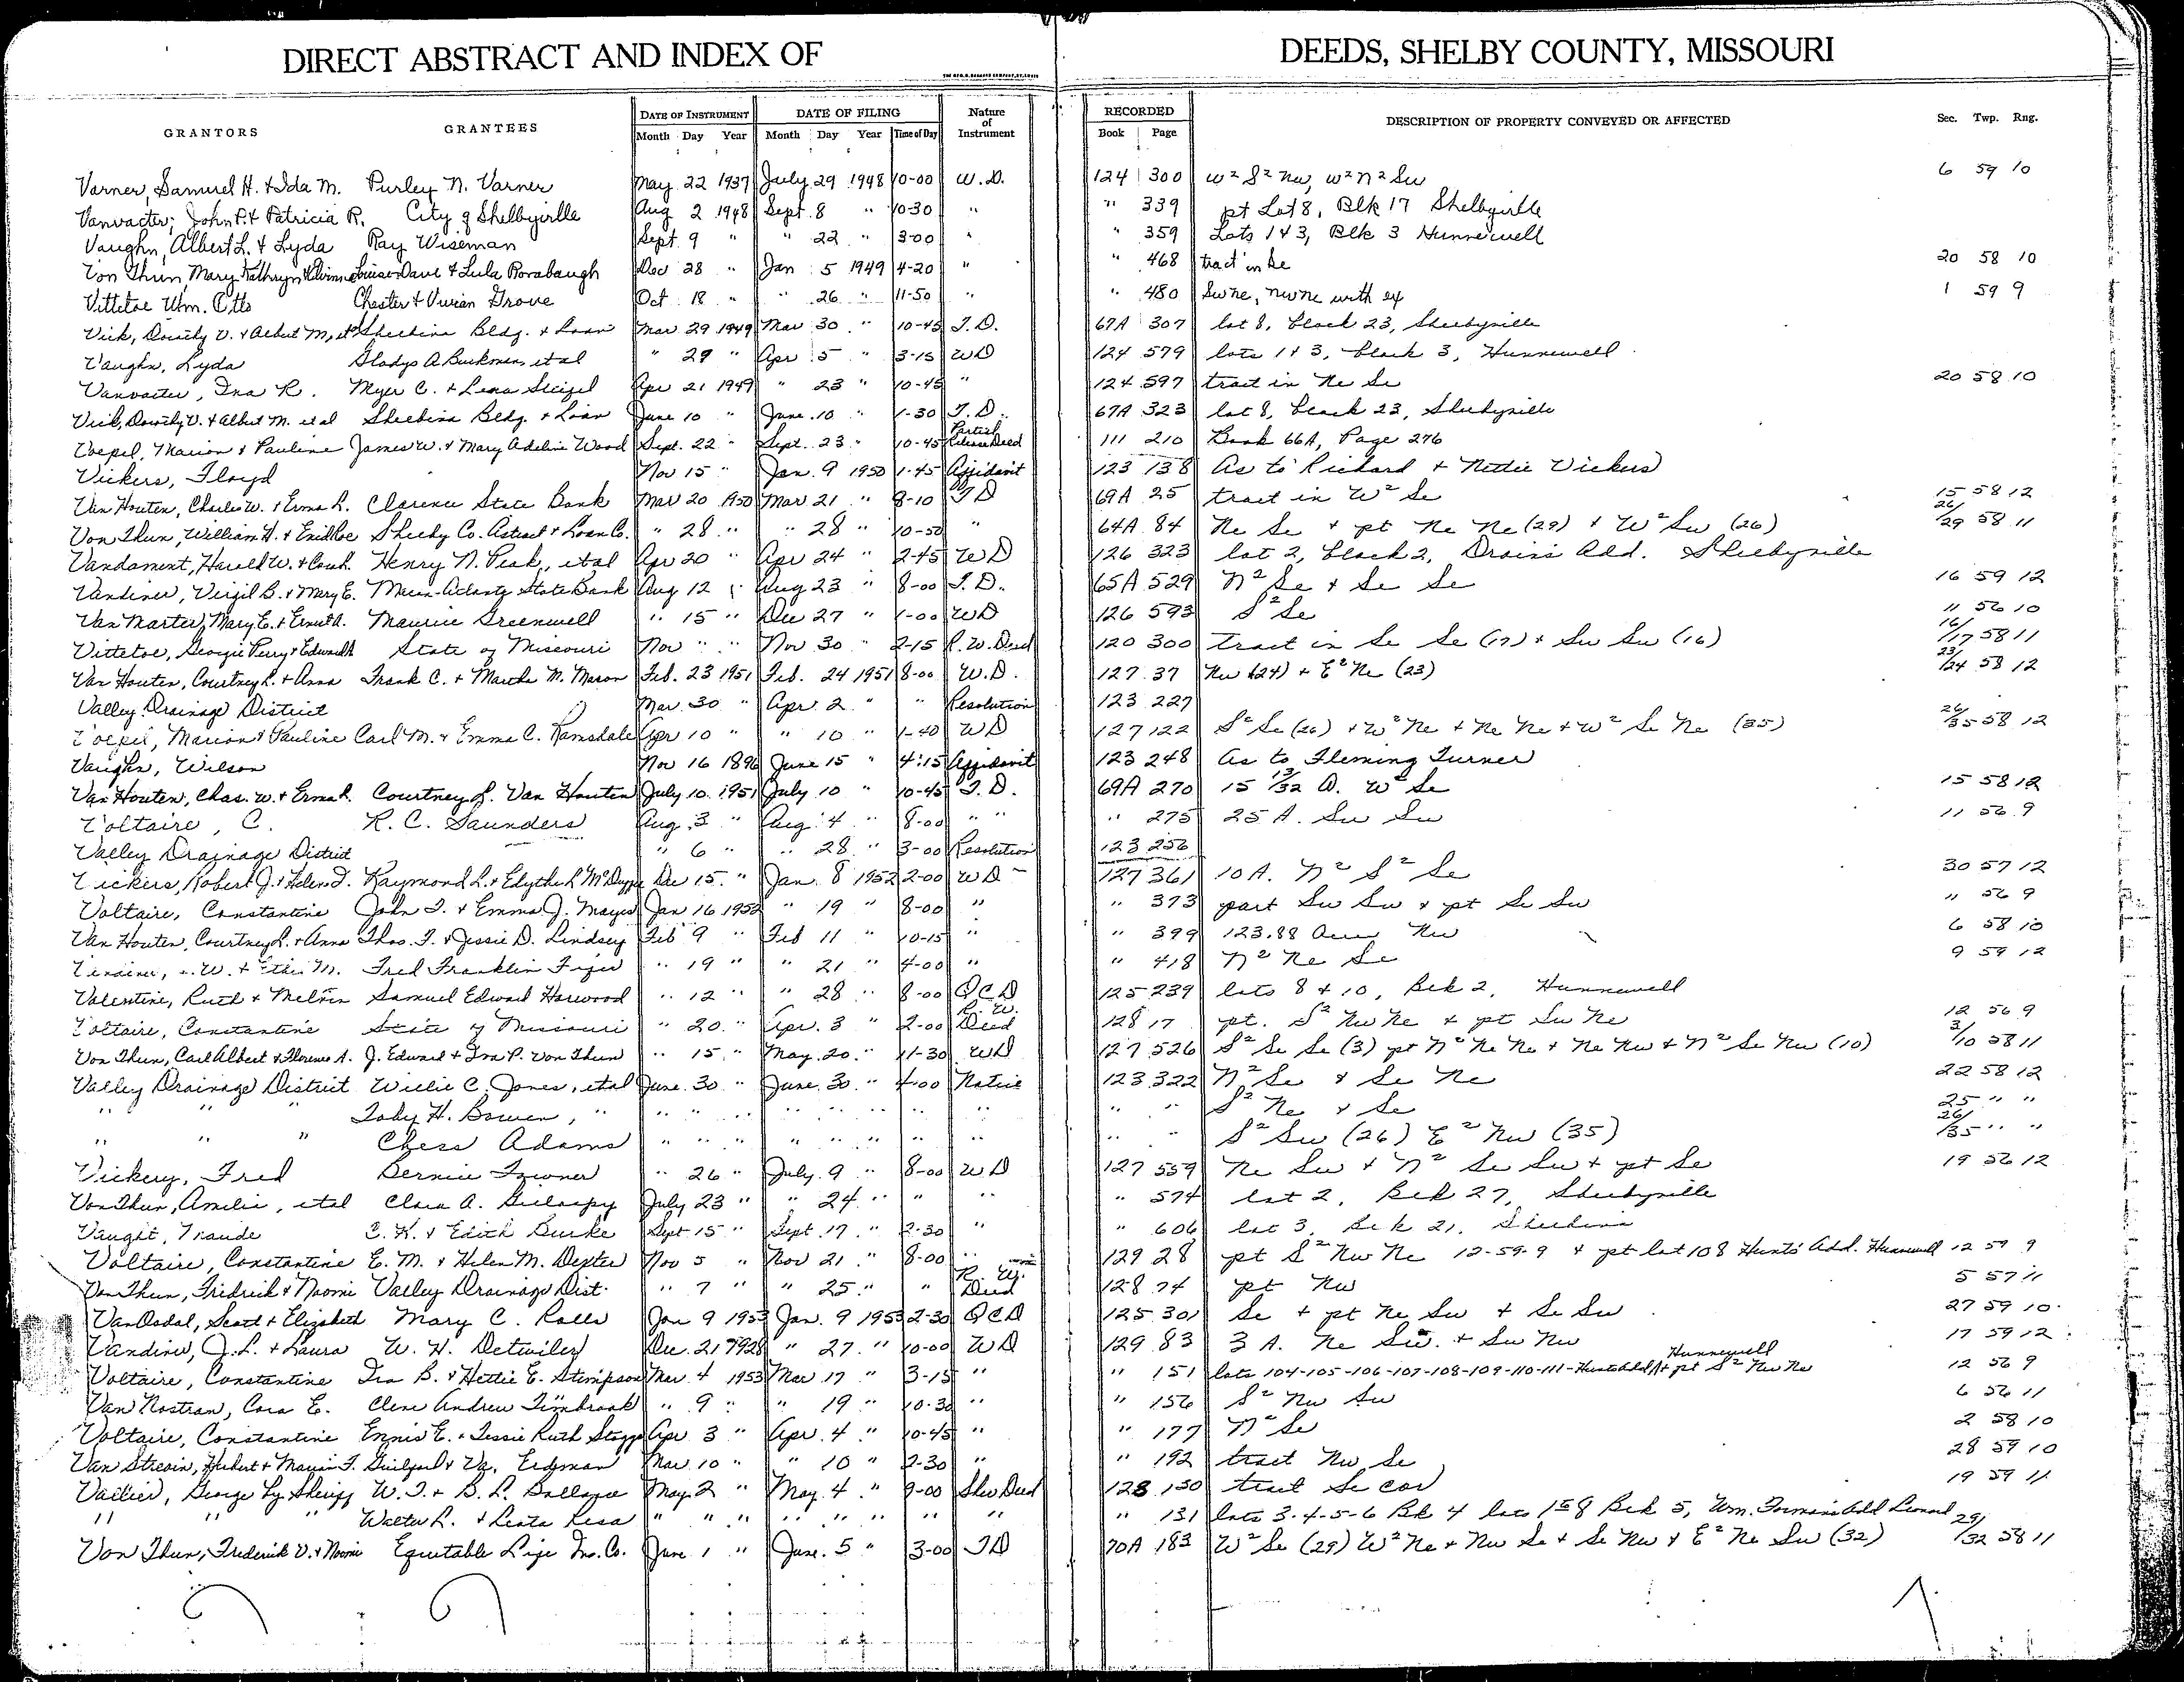 DIRECT ABSTRACT AND INDEX OF DEEDS, SHELBY COUNTY, MISSOURI
GRANTORS GRANTEES DATE OF INSTRUMENT DATE OF FILING Nature of Instrument RECORDED DESCRIPTION OF PROPERTY CONVEYED OR AFFECTED Sec. Twp. Rng.
Month Day Year Month Day Year Time of Day Book Page
Varner, Samuel H. & Ida M. Purley N. Varner May 22 1937 July 29 1948 10-00 W.D. 124 300 W² S² NW, W² N² SW 6 59 10
Vanvacter, John P. & Patricia R. City of Shelbyville Aug 2 1948 Sept. 8 " 10-30 " " 339 pt Lot 8, Blk 17 Shelbyville
Vaughn, Albert L. & Lyda Ray Wiseman Sept. 9 " " 22 " 3-00 " " 359 Lots 1 & 3, Blk 3 Hunnewell
Von Thun, Mary Kathryn Louise Dave & Lula Rorabaugh Dec 28 " Jan 5 1949 4-20 " " 468 tract in Se 20 58 10
Vittetoe Wm. Otto Chester & Vivian Grove Oct. 18 " " 26 " 11-50 " " 480 Swne, nwne with ex 1 59 9
Vick, Dorothy V. & Albert M, et al Shelbina Bldg. & Loan Mar 29 1949 Mar 30 " 10-45 T.D. 67A 307 lot 8, block 23, Shelbyville
Vaughn, Lyda Gladys A et al " 29 " Apr 5 " 3-15 WD 124 579 lots 1 & 3, block 3, Hunnewell
Vanvacter, Ina R. Myer C. & Lena Apr 21 1949 " 23 " 10-45 " 124 597 tract in Ne Se 20 58 10
Vick, Dorothy V. & Albert M. et al Shelbina Bldg. & Loan June 10 " June 10 " 1-30 T.D. 67A 323 lot 8, block 23, Shelbyville
Voepel, Marion & Pauline James W. & Mary Adeline Wood Sept. 22 " Sept. 23 " 10-45 Partial Release Deed 111 210 Book 66A, Page 276
Vickers, Floyd Nov 15 " Jan. 9 1950 1-45 Affidavit 123 138 As to Richard & Nettie Vickers
Van Houten, Charles W. & Erma L. Clarence State Bank Mar 20 1950 Mar 21 " 8-10 TD 69A 25 tract in W² Se 15 58 12
Von Thun, William H. & Shelby Co. Abstract & Loan Co. " 28 " " 28 " 10-50 " 64A 84 Ne Se & pt Ne Ne (29) & W² Sw (26) 26/29 58 11
Vandament, Harold W. & Henry N. Peak, et al Apr 20 " Apr 24 " 2-45 WD 126 323 lot 2, block 2, Add. Shelbyville
Vandiver, Virgil B. & Mary E. Macon-Atlanta State Bank Aug 12 " Aug 23 " 8-00 T.D. 65A 529 N² Se & Se Se 16 59 12
Van Marter, Mary E. & Ernest A. Maurice Greenwell " 15 " Dec 27 " 1-00 WD 126 593 S² Se 11 56 10
Vittetoe, Georgie Perry & Edward State of Missouri Nov " " Nov 30 " 2-15 R.W. Deed 120 300 tract in Se Se (17) & Sw Sw (16) 16/17 58 11
Van Houten, Courtney L. & Anna Frank C. & Martha M. Mason Feb. 23 1951 Feb. 24 1951 8-00 W.D. 127 37 Nw (24) & E² Ne (23) 23/24 58 12
Valley Drainage District Mar. 30 " Apr. 2 " " Resolution 123 227
Voepel, Marion & Pauline Carl M. & Emma C. Ramsdale Apr 10 " " 10 " 1-40 WD 127 122 S² Se (26) & W² Ne & Ne Ne & W² Se Ne (35) 26/35 58 12
Vaughn, Wilson Nov 16 1896 June 15 " 4:15 Affidavit 123 248 As to Fleming Turner
Van Houten, Chas. W. & Erma L. Courtney L. Van Houten July 10 1951 July 10 " 10-45 T.D. 69A 270 15 13/32 A. W² Se 15 58 12
Voltaire, C. R. C. Saunders Aug. 3 " Aug. 4 " 8-00 " " " 275 25 A. Sw Sw 11 56 9
Valley Drainage District " 6 " " 28 " 3-00 Resolution 123 256
Vickers, Robert J. & Helen J. Raymond L. & Edythe L. Dec 15 " Jan. 8 1952 2-00 WD 127 361 10 A. N² S² Se 30 57 12
Voltaire, Constantine John T. & Emma J. Mayes Jan 16 1952 " 19 " 8-00 " " 373 part Sw Sw & pt Se Sw " 56 9
Van Houten, Courtney L. & Anna Thos. F. & Jessie D. Lindsey Feb 9 " Feb 11 " 10-15 " " 399 123.88 Acres Nw 6 58 10
W. & M. Fred Franklin " 19 " " 21 " 4-00 " " 418 N² Ne Se 9 59 12
Valentine, Ruth & Melvin Samuel Edward Harwood " 12 " " 28 " 8-00 QCD 125 239 lots 8 & 10, Blk 2, Hunnewell
Voltaire, Constantine State of Missouri " 20 " Apr. 3 " 2-00 R.W. Deed 128 17 pt. S² Nw Ne & pt Sw Ne 12 56 9
Von Thun, Carl Albert & Florence A. J. Edward & Iva P. Von Thun " 15 " May 20 " 11-30 WD 127 526 S² Se Se (3) pt N² Ne Ne & Ne Nw & N² Se Nw (10) 3/10 58 11
Valley Drainage District Willie C. Jones, et al June 30 " June 30 " 4-00 Notice 123 322 N² Se & Se Ne 22 58 12
" " " Toby H. Bowen, " " " " " " " " " " " S² Ne & Se 25 " "
" " " Chess Adams " " " " " " " " " " S² Sw (26) E² Nw (35) 26/35 " "
Vickery, Fred Bernice " 26 " July 9 " 8-00 WD 127 559 Ne Sw & N² Se Sw & pt Se 19 56 12
Von Thun, Amelia, et al Clara A. Gillaspy July 23 " " 24 " " " " 574 lot 2, Blk 27, Shelbyville
Vaught, Claude C. H. & Edith Burke Sept 15 " Sept. 17 " 2-30 " " 606 lot 3, Blk 21, Shelbina
Voltaire, Constantine E. M. & Helen M. Dexter Nov 5 " Nov 21 " 8-00 " 129 28 pt S² Nw Ne 12-59-9 & pt lot 108 Hunts Add. Hunnewell 12 59 9
Von Thun, Fredrick & Naomi Valley Drainage Dist. " 7 " " 25 " " R. W. Deed 128 74 pt Nw 5 57 11
VanOsdal, Scott & Elizabeth Mary C. Ralls Jan 9 1953 Jan. 9 1953 2-30 QCD 125 301 Se & pt Ne Sw & Se Sw 27 59 10
Vandiver, J. L. & Laura W. H. Detwiler Dec. 21 1928 " 27 " 10-00 WD 129 83 3 A. Ne Sw & Sw Nw 17 59 12
Voltaire, Constantine Ira B. & Hettie E. Stimpson Mar 4 1953 Mar 17 " 3-15 " " 151 lots 104-105-106-107-108-109-110-111-Hunts Add Hunnewell & pt S² Nw Ne 12 56 9
Van Nostran, Cora E. Clene Andrew Timbrook " 9 " " 19 " 10-30 " " 156 S² Nw Sw 6 56 11
Voltaire, Constantine Ennis E. & Tessie Ruth Apr 3 " Apr. 4 " 10-45 " " 177 N² Se 2 58 10
Van Hubert & Va. Erdman Mar 10 " " 10 " 2-30 " " 192 tract Nw Se 28 59 10
George by Sheriff W. T. & B. L. May 2 " May 4 " 9-00 Sher Deed 128 130 tract Se cor 19 59 11
" " " Walter L. & " " " " " " " " " 131 lots 3-4-5-6 Blk 4 lots 1 5 8 Blk 5, Wm. Add Leonard
Von Thun, Frederick V. & Naomi Equitable Life Ins. Co. June 1 " June 5 " 3-00 TD 70A 183 W² Se (29) W² Ne & Nw Se & Se Nw & E² Ne Sw (32) 29/32 58 11